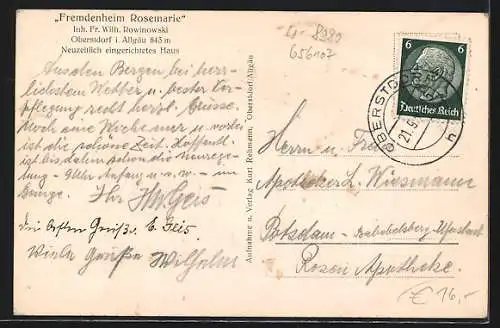 „Fremdenheim Rosemarie"
Inh. Fr. Wilh. Rowinowski
Oberstdorf i. Allgäu 843 m
Neuzeitlich eingerichtetes Haus
Aus den Bergen, bei herr-
lichstem Wetter u. bester Ver-
pflegung recht herzl. Grüsse.
Noch eine Woche nur u. vorbei
ist die schöne Zeit. Hoffentl.
ist bis dahin schon die
Ihr
Grüß
Viele Grüße Wilhelm
Aufnahme u. Verlag Kurt Rehmann, Oberstdorf/Allgäu
8989
656107
6 6
Deutsches Reich
OBERSTDORF
21.9
Herrn u. Frau
Apotheker L. Wiesmann
Potsdam - Babelsberg Ufastadt
Rosen Apotheke.
€ 16,-